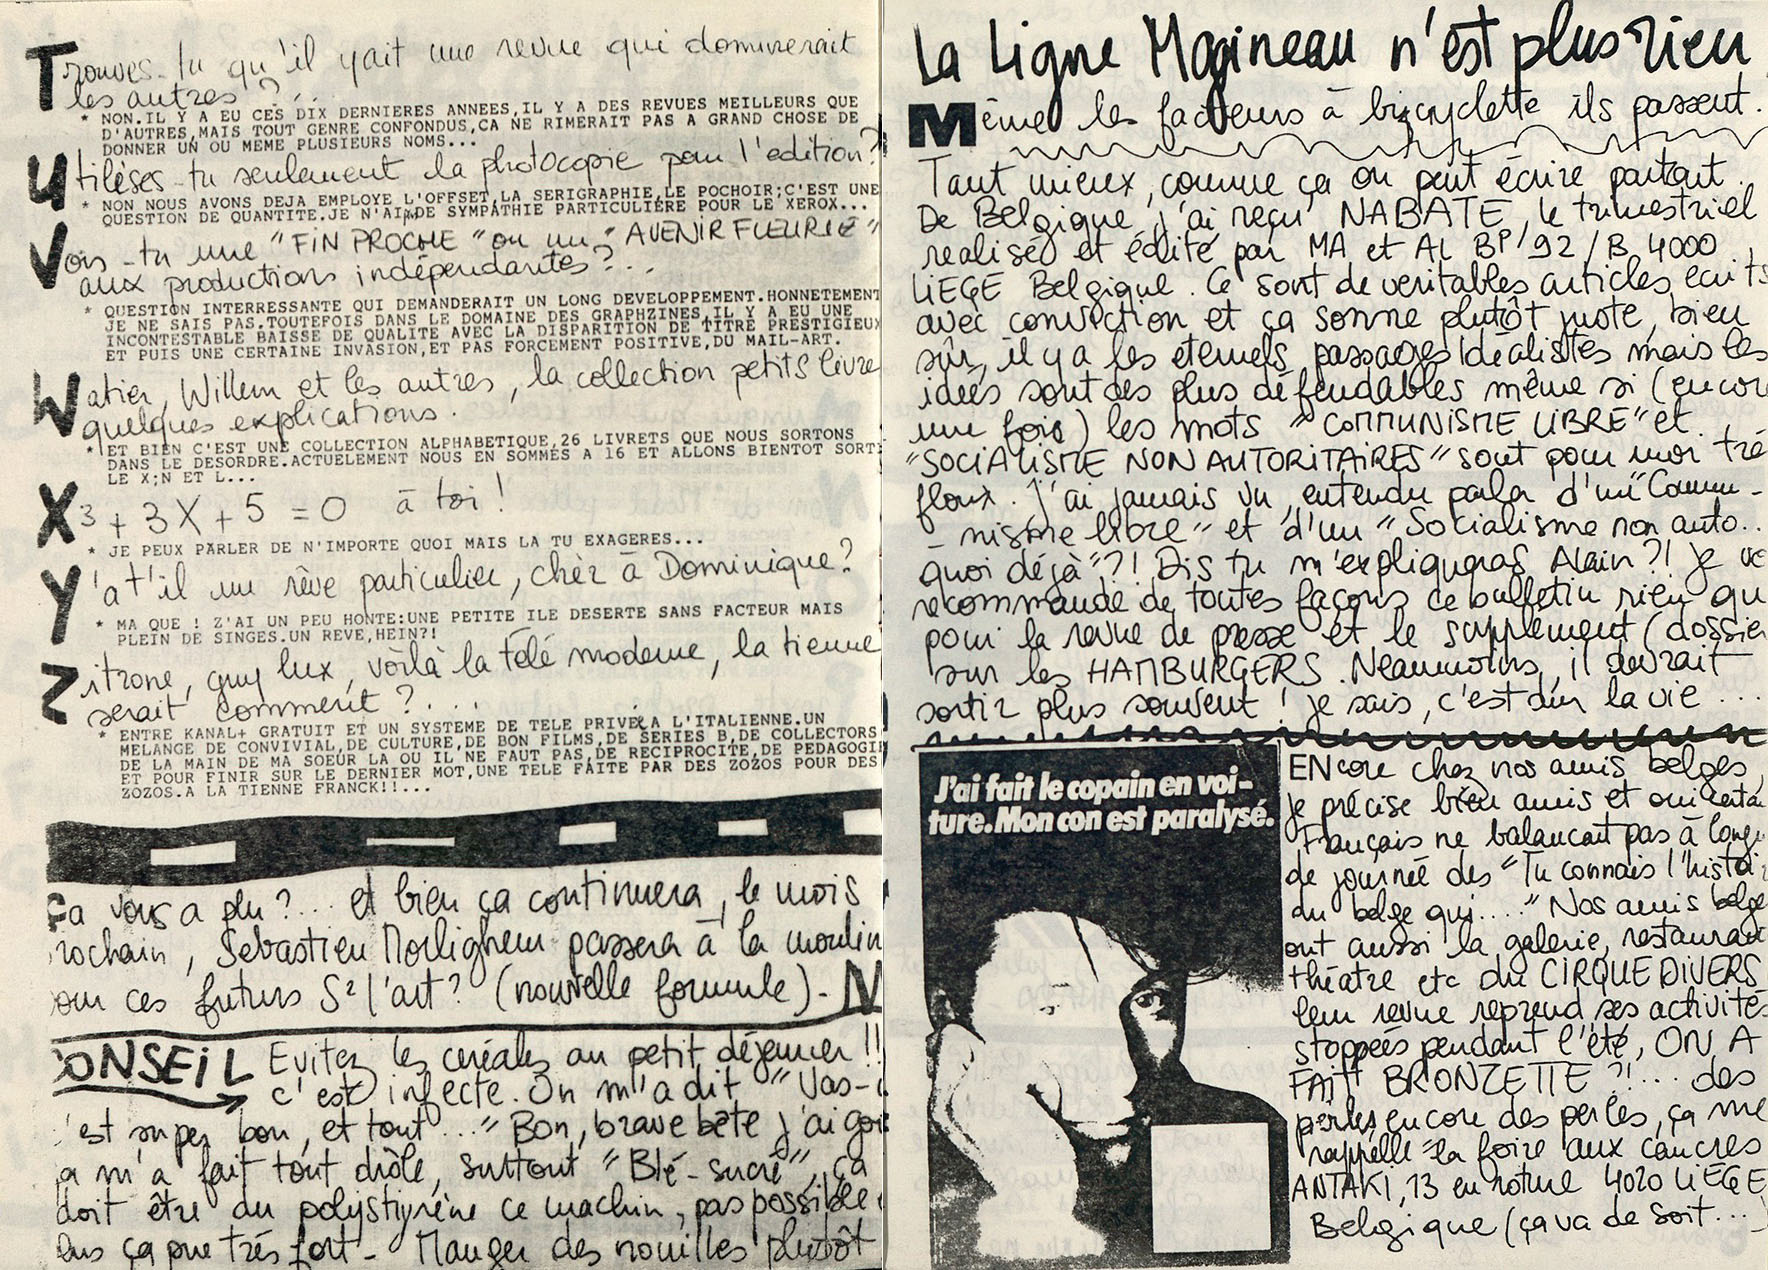 Trouves-tu qu'il y ait une revue qui dominerait
les autres ?...
* NON.IL Y A EU CES DIX DERNIERES ANNEES,IL Y A DES REVUES MEILLEURS QUE
D'AUTRES,MAIS TOUT GENRE CONFONDUS,CA NE RIMERAIT PAS A GRAND CHOSE DE
DONNER UN OU MEME PLUSIEURS NOMS...
Utiléses-tu seulement la photocopie pour l'edition?
* NON NOUS AVONS DEJA EMPLOYE L'OFFSET,LA SERIGRAPHIE,LE POCHOIR;C'EST UNE
QUESTION DE QUANTITE.JE N'AI DE SYMPATHIE PARTICULIÈRE POUR LE XEROX...
Vois-tu une "FIN PROCHE" ou un "AVENIR FLEURIE"
aux productions indépendantes ?...
* QUESTION INTERRESSANTE QUI DEMANDERAIT UN LONG DEVELOPPEMENT.HONNETEMENT
JE NE SAIS PAS.TOUTEFOIS DANS LE DOMAINE DES GRAPHZINES,IL Y A EU UNE
INCONTESTABLE BAISSE DE QUALITE AVEC LA DISPARITION DE TITRE PRESTIGIEUX
ET PUIS UNE CERTAINE INVASION,ET PAS FORCEMENT POSITIVE,DU MAIL-ART.
Watier, Willem et les autres, la collection petits livre
quelques explications.
* ET BIEN C'EST UNE COLLECTION ALPHABETIQUE,26 LIVRETS QUE NOUS SORTONS
DANS LE DESORDRE.ACTUELEMENT NOUS EN SOMMES A 16 ET ALLONS BIENTOT SORTI
LE X;N ET L...
X3 + 3X + 5 = 0 à toi !
* JE PEUX PARLER DE N'IMPORTE QUOI MAIS LA TU EXAGERES...
Y'a t'il un rêve particulier, chèr à Dominique ?
* MA QUE ! Z'AI UN PEU HONTE:UNE PETITE ILE DESERTE SANS FACTEUR MAIS
PLEIN DE SINGES.UN REVE,HEIN?!
Zitrone, guy lux, voilà la télé moderne, la tienne
serait comment ?...
* ENTRE KANAL+ GRATUIT ET UN SYSTEME DE TELE PRIVÉ A L'ITALIENNE.UN
MELANGE DE CONVIVIAL,DE CULTURE,DE BON FILMS,DE SERIES B,DE COLLECTORS
DE LA MAIN DE MA SOEUR LA OU IL NE FAUT PAS,DE RECIPROCITE,DE PEDAGOGI
ET POUR FINIR SUR LE DERNIER MOT,UNE TELE FAITE PAR DES ZOZOS POUR DES
ZOZOS.A LA TIENNE FRANCK!!...
Ça vous a plu ?... et bien ça continuera, le mois
rochain, Sebastien Morlighem passera à la moulin
our ces futurs S² l'art ? (nouvelle formule)- N
CONSEIL Evitez les ceréales au petit déjeuner !!
c'est infecte. On m'a dit "Vas-
'est super bon, et tout..." Bon, brave bête j'ai goû
a m'a fait tout drôle, surtout "Blé-sucré", ça
doit être du polystyrène ce machin, pas possible
lus ça pue très fort- Manger des nouilles plutôt
La Ligne Magineau n'est plus rien
Même les facteurs à bicyclette ils passent.
Tant mieux, comme ça on peut écrire partout.
De Belgique, j'ai reçu NABATE, le trimestriel
realisé et édité par MA et AL BP/92/B 4000
LIEGE Belgique. Ce sont de veritables articles, ecrits
avec conviction et ça sonne plutôt juste, bien
sûr, il y a les eternels passages idéalistes mais les
idées sont des plus défendables même si (encore
une fois) les mots "COMMUNISME LIBRE" et
"SOCIALISME NON AUTORITAIRES" sont pour moi tré
floux. J'ai jamais vu, entendu parlor d'un "Commu-
-nisme libre" et d'un "Socialisme non auto..
quoi déjà"?! Dis tu m'expliqueras Alain ?! je ve
recommande de toutes façons ce bulletin rien qu
pour la revue de presse et le supplement (dossier
sur les HAMBURGERS. Neanmoins, il devrait
sortir plus souvent ! je sais, c'est dur la vie ...
J'ai fait le copain en voi-
ture. Mon con est paralysé.
ENcore chez nos amis belges,
je précise bien amis et oui certai
Français ne balancant pas à longu
de journée des "Tu connais l'histoi
du belge qui...." Nos amis belge
ont aussi la galerie, restaurant
théatre etc du CIRQUE DIVERS
leur revue reprend ses activités
stoppées pendant l'été, ON A
FAIT BRONZETTE ?!... des
perles, encore des perles, ça me
rappelle la foire aux cancres
ANTAKI, 13 en roture 4020 LIEGE
Belgique (ça va de soit...)